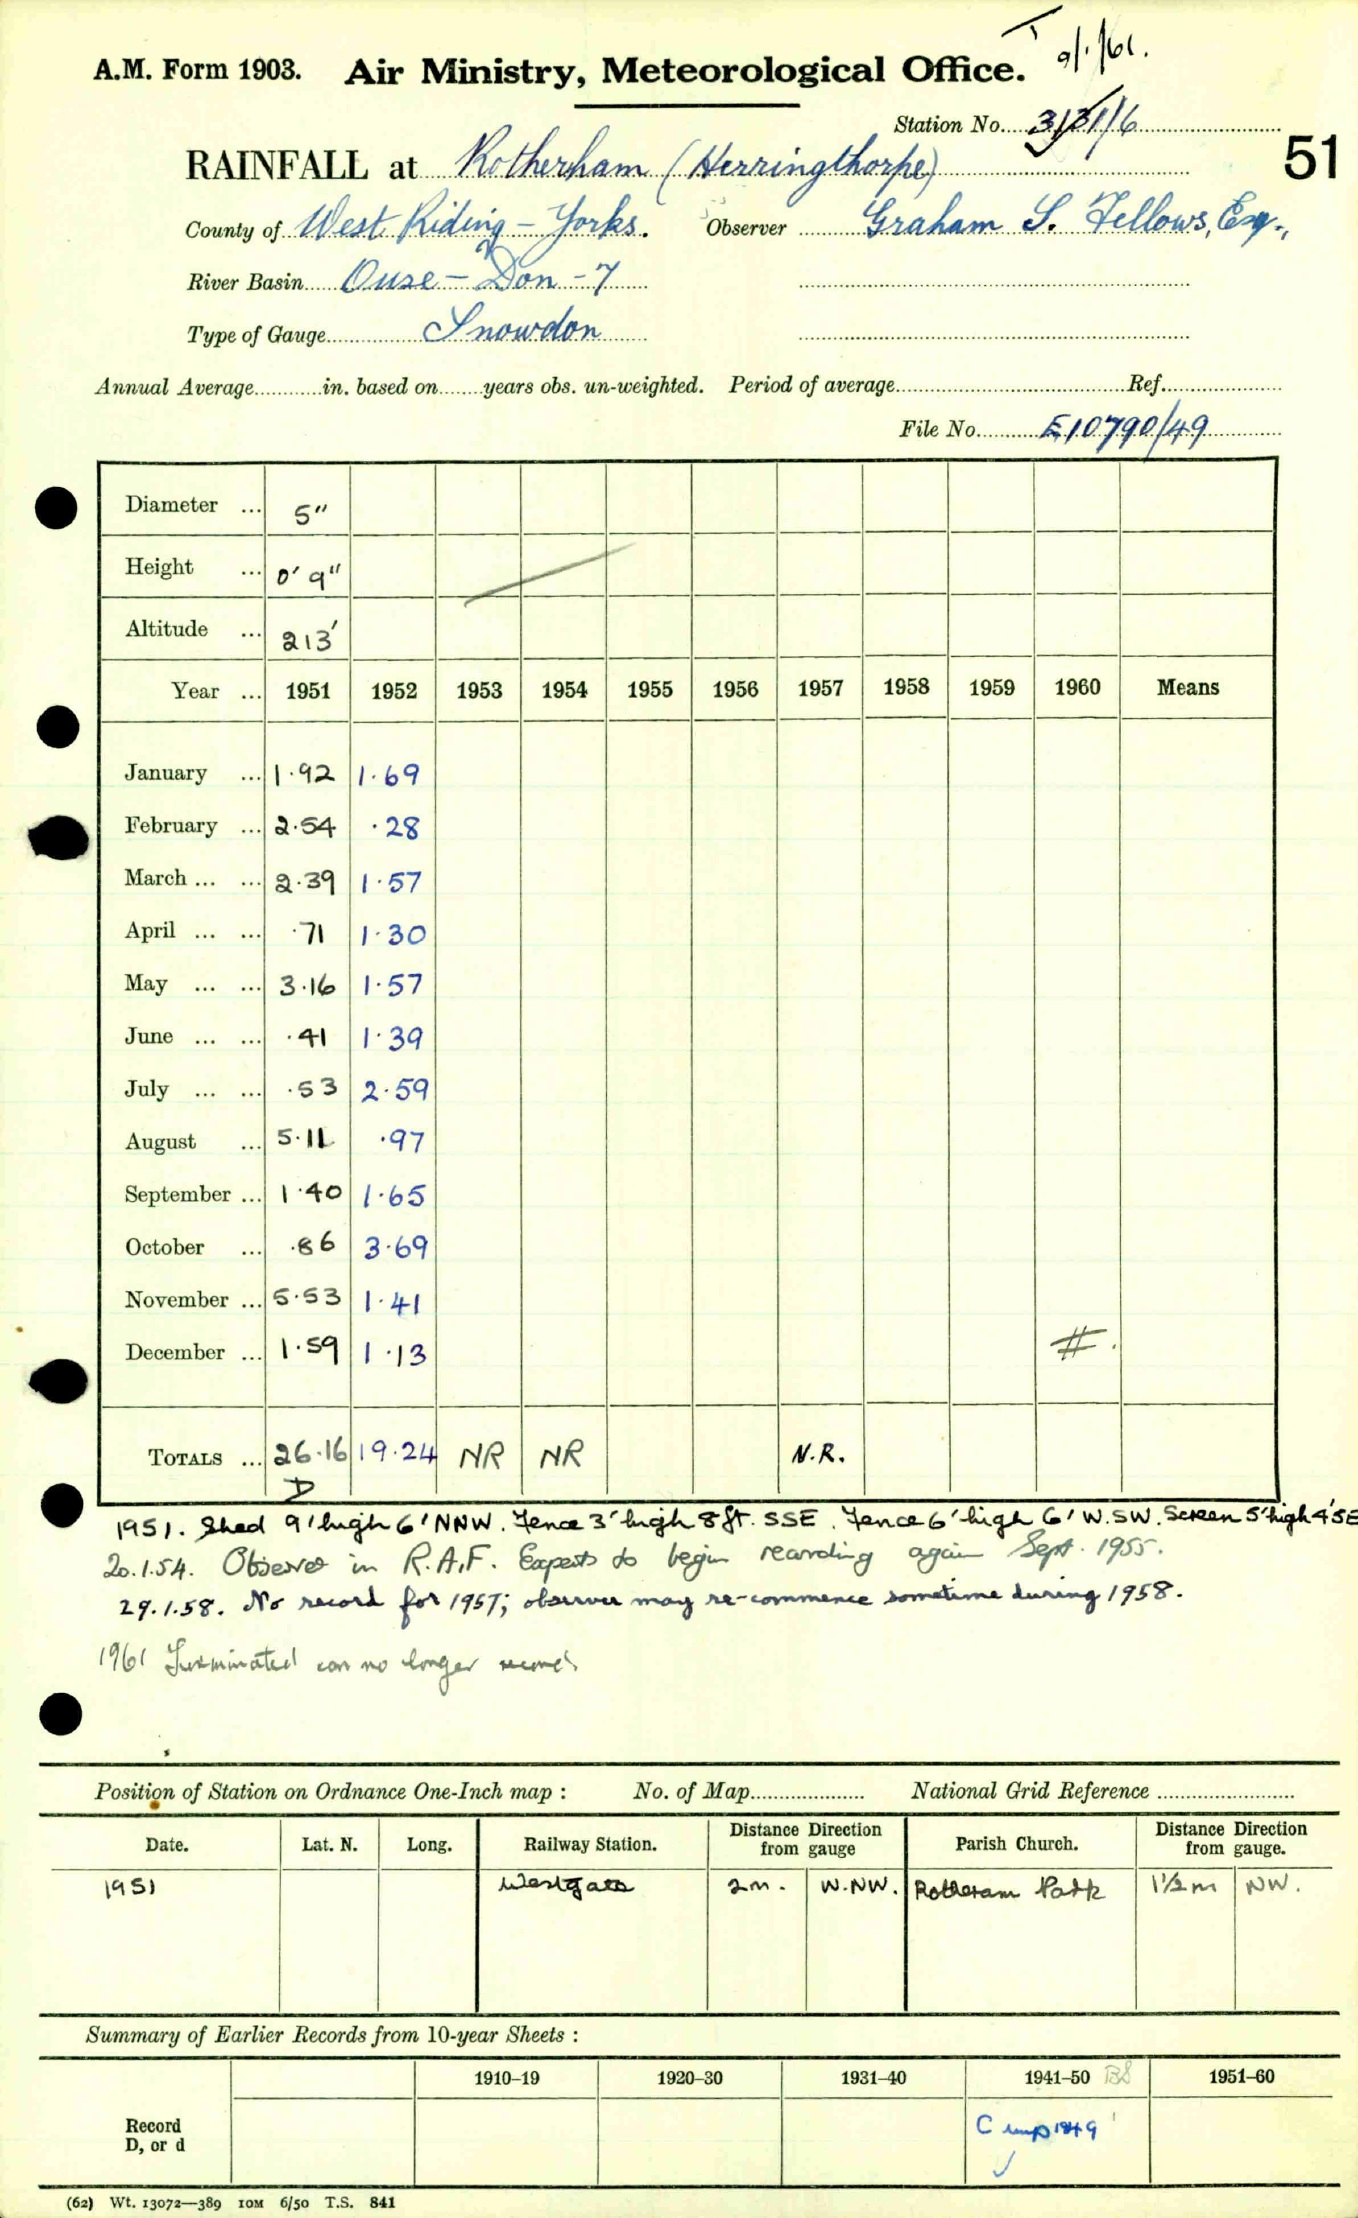 9/1/61.
A.M. Form 1903. Air Ministry, Meteorological Office.
Station No. 3/31/6
51
RAINFALL at Rotherham (Herringthorpe)
County of West Riding - Yorks. Observer Graham S. Fellows, Esq.,
River Basin Ouse - Don - 7
Type of Gauge Snowdon
Annual Average in. based on years obs. un-weighted. Period of average Ref.
File No. E10790/49
Diameter ... 5"
Height ... 0' 9"
Altitude ... 213'
Year ... 1951 1952 1953 1954 1955 1956 1957 1958 1959 1960 Means
January ... 1.92 1.69
February ... 2.54 .28
March ... ... 2.39 1.57
April ... ... .71 1.30
May ... ... 3.16 1.57
June ... ... .41 1.39
July ... ... .53 2.59
August ... 5.11 .97
September ... 1.40 1.65
October ... .86 3.69
November ... 5.53 1.41
December ... 1.59 1.13 #.
TOTALS ... 26.16 19.24 NR NR N.R.
D
1951. Shed 9' high 6' NNW. Fence 3' high 8ft. SSE. Fence 6' high 6' W.SW. Screen 5' high 4' SE
20.1.54. Observer in R.A.F. Expects to begin recording again Sept. 1955.
29.1.58. No record for 1957; observer may re-commence sometime during 1958.
1961 Terminated can no longer record
Position of Station on Ordnance One-Inch map : No. of Map National Grid Reference
Date. Lat. N. Long. Railway Station. Distance Direction from gauge Parish Church. Distance Direction from gauge.
1951 Westgate 2m. W.NW. Rotheram Park 1½m NW.
Summary of Earlier Records from 10-year Sheets :
1910–19 1920–30 1931–40 1941–50 1951–60
Record
D, or d
C 1949
(62) Wt. 13072—389 10M 6/50 T.S. 841